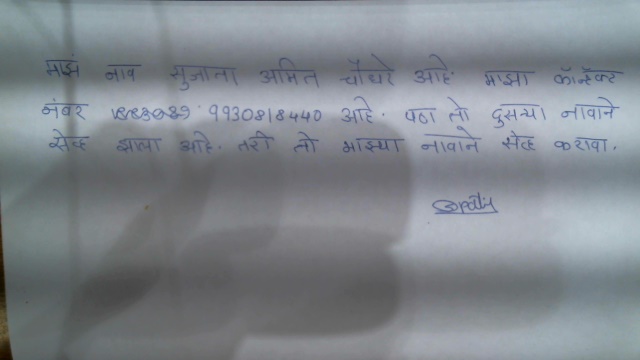 माझं नाव सुजाता अमित चौधरे आहे. माझा कॉन्टॅक्ट
नंबर 9930818440 आहे. पण तो दुसऱ्या नावाने
सेव्ह झाला आहे. तरी तो माझ्या नावाने सेव्ह करावा.